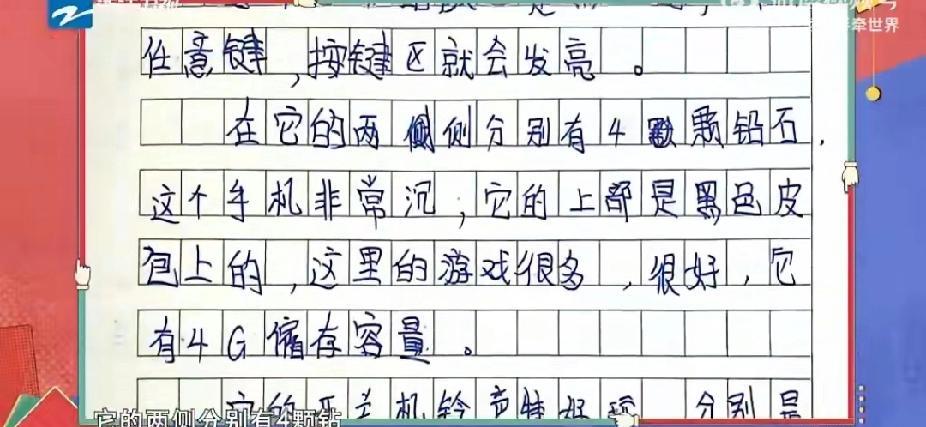 牵世界
任意键，按键区就会发亮。
在它的两侧分别有4颗铅石，
这个手机非常沉；它的上部是黑色皮
包上的，这里的游戏很多，很好，它
有4G储存容量。
它的开关机铃声特好听，分别是
它的两侧分别有4颗钻